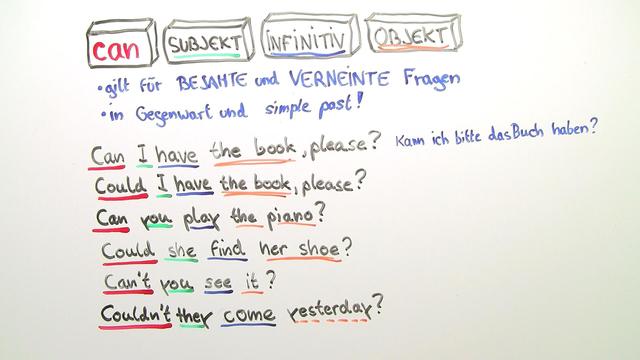 can SUBJEKT INFINITIV OBJEKT
• gilt für BEJAHTE und VERNEINTE Fragen
• in Gegenwart und simple past!
Can I have the book, please? Kann ich bitte das Buch haben?
Could I have the book, please?
Can you play the piano?
Could she find her shoe?
Can't you see it?
Couldn't they come yesterday?